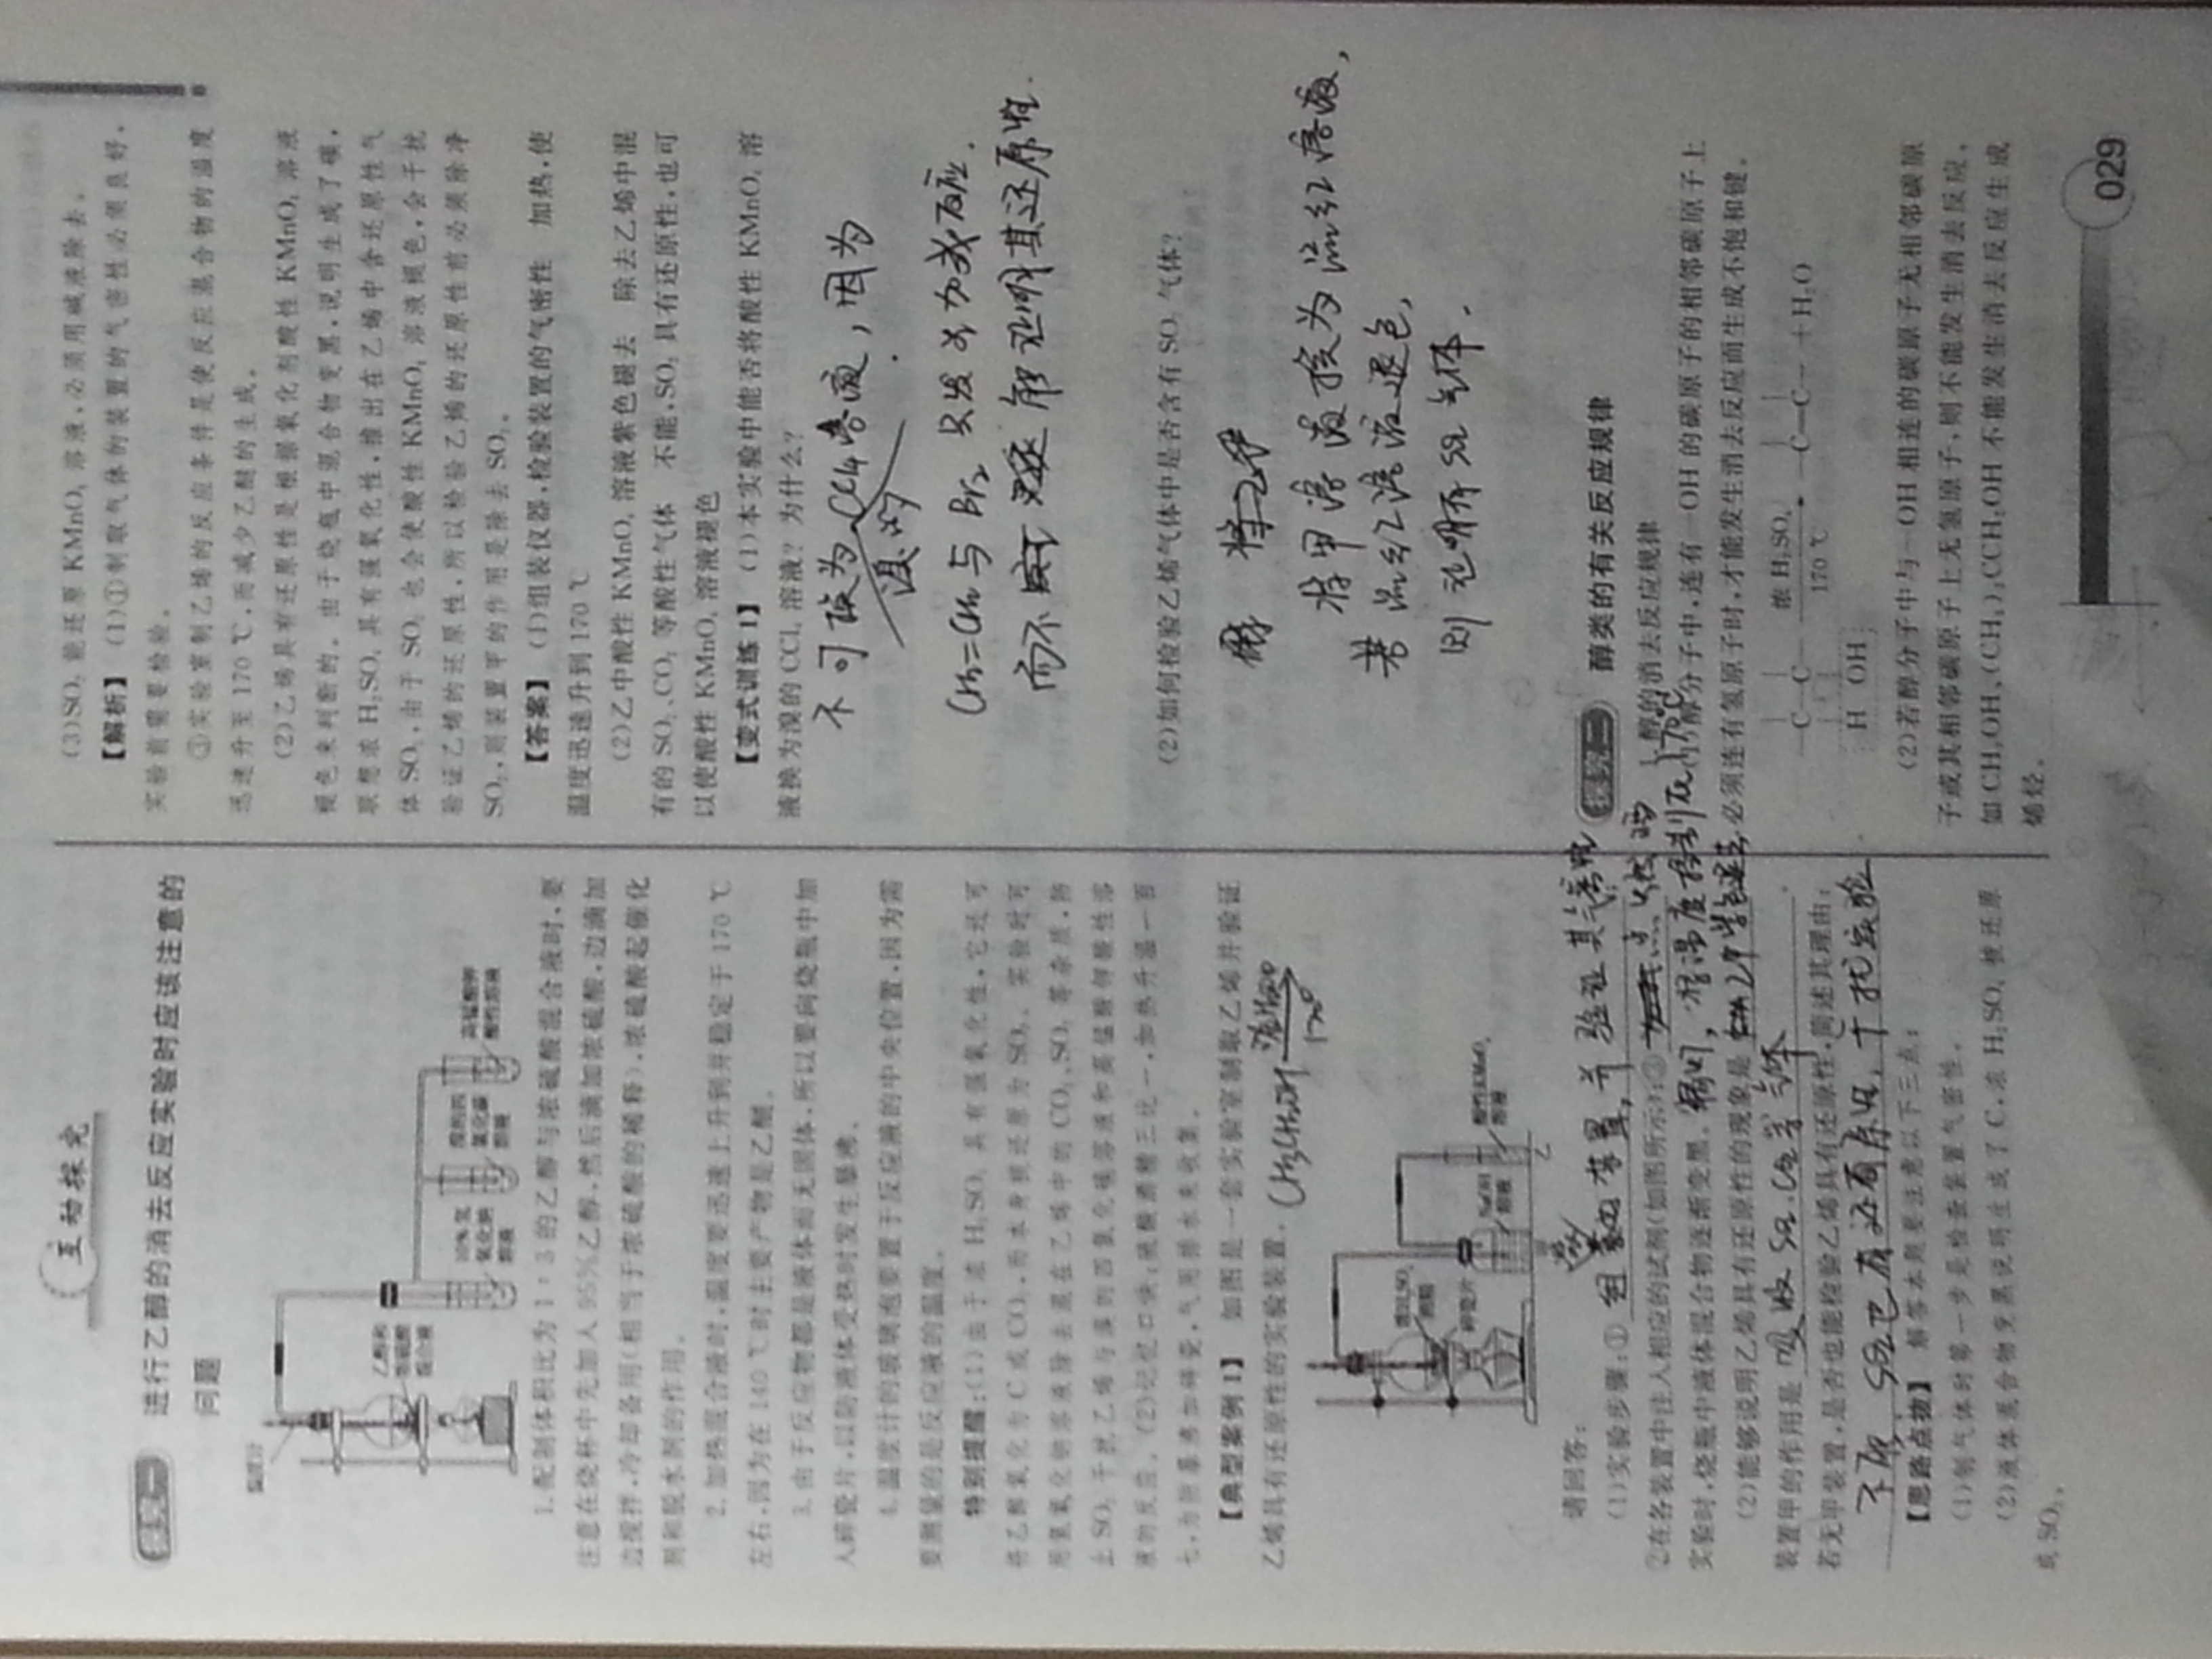 互动探究
探究一 进行乙醇的消去反应实验时应该注意的
问题
温度计
乙醇和
浓硫酸
混合液
10%氢
氧化钠
溶液
溴的四
氯化碳
溶液
高锰酸钾
酸性溶液
1.配制体积比为1∶3的乙醇与浓硫酸混合液时,要
注意在烧杯中先加入95%乙醇,然后滴加浓硫酸,边滴加
边搅拌,冷却备用(相当于浓硫酸的稀释),浓硫酸起催化
剂和脱水剂的作用。
2.加热混合液时,温度要迅速上升到并稳定于170 ℃
左右,因为在140 ℃时主要产物是乙醚。
3.由于反应物都是液体而无固体,所以要向烧瓶中加
入碎瓷片,以防液体受热时发生暴沸。
4.温度计的玻璃泡要置于反应液的中央位置,因为需
要测量的是反应液的温度。
特别提醒:(1)由于浓H₂SO₄具有强氧化性,它还可
将乙醇氧化为C或CO₂,而本身被还原为SO₂。实验时可
用氢氧化钠溶液除去混在乙烯中的CO₂、SO₂等杂质,防
止SO₂干扰乙烯与溴的四氯化碳溶液和高锰酸钾酸性溶
液的反应。(2)记忆口诀:硫酸酒精三比一,加热升温一百
七,为防暴沸加碎瓷,气用排水来收集。
【典型案例1】 如图是一套实验室制取乙烯并验证
乙烯具有还原性的实验装置。
CH3CH2OH
170°
浓H₂SO₄
酒精
碎瓷片
NaOH
溶液
酸性KMnO₄
溶液
乙
请回答:
(1)实验步骤:① 组装装置,并验证其气密性
②在各装置中注入相应的试剂(如图所示);③ 点燃酒
实验时,烧瓶中液体混合物逐渐变黑。 精灯,将温度控制在170℃
(2)能够说明乙烯具有还原性的现象是 乙中紫色退去
装置甲的作用是 吸收SO2、CO2等气体 .
若无甲装置,是否也能检验乙烯具有还原性,简述其理由:
SO2也有还原性,干扰实验
【思路点拨】 解答本题要注意以下三点:
(1)制气体时第一步是检查装置气密性。
(2)液体混合物变黑说明生成了C,浓H₂SO₄被还原
成SO₂。
(3)SO₂能还原KMnO₄溶液,必须用碱液除去。
【解析】 (1)①制取气体的装置的气密性必须良好,
实验前需要检验。
③实验室制乙烯的反应条件是使反应混合物的温度
迅速升至170 ℃,而减少乙醚的生成。
(2)乙烯具有还原性是根据氧化剂酸性KMnO₄溶液
褪色来判断的。由于烧瓶中混合物变黑,说明生成了碳,
联想浓H₂SO₄具有强氧化性,推出在乙烯中含还原性气
体SO₂,由于SO₂也会使酸性KMnO₄溶液褪色,会干扰
验证乙烯的还原性,所以检验乙烯的还原性前必须除净
SO₂,则装置甲的作用是除去SO₂。
【答案】 (1)组装仪器,检验装置的气密性 加热,使
温度迅速升到170 ℃
(2)乙中酸性KMnO₄溶液紫色褪去 除去乙烯中混
有的SO₂、CO₂等酸性气体 不能,SO₂具有还原性,也可
以使酸性KMnO₄溶液褪色
【变式训练1】 (1)本实验中能否将酸性KMnO₄溶
液换为溴的CCl₄溶液?为什么?
不可换为CCl4溶液,因为
溴的
CH2=CH2与Br2只发生加成反应.
而不能证明其还原性.
(2)如何检验乙烯气体中是否含有SO₂气体?
将甲溶液换为品红溶液,
若品红溶液退色,
则证明有SO2气体.
探究二 醇类的有关反应规律
1.醇的消去反应规律
(1)醇分子中,连有—OH的碳原子的相邻碳原子上
必须连有氢原子时,才能发生消去反应而生成不饱和键。
—C—C— 浓H₂SO₄ 170 ℃ —C=C— +H₂O
H OH
(2)若醇分子中与—OH相连的碳原子无相邻碳原
子或其相邻碳原子上无氢原子,则不能发生消去反应。
如CH₃OH、(CH₃)₃CCH₂OH不能发生消去反应生成
烯烃。
029